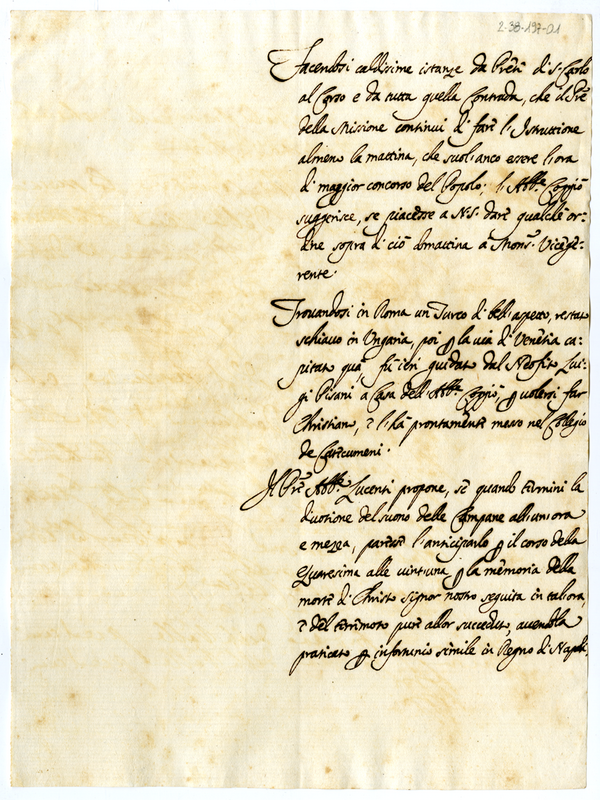 2-38-197-01
Facendosi caldissime istanze da Preti di S. Carlo
al Corso e da tutta quella Contrada, che il Pre
della Missione continui di fare l'Istruttione
almeno la mattina, che suol'anco essere l'ora
di maggior concorso del Popolo; l'Abbe Coppio
suggerisce, se piacesse a N.S. dare qualche or-
dine sopra di ciò domattina a Mons.r Viceg.e-
rente.
Trovandosi in Roma un Turco di bell'aspetto, restato
schiavo in Ungaria, poi p la via di Venetia ca-
pitato quà, fù ieri guidato dal Neofito Lui-
gi Pisani a Casa dell'Abbe Coppio, p volersi far
Christiano, e l'hà prontamente messo nel Collegio
de Catecumeni.
Il Pre Abbe Lucenti propone, se quando termini la
divotione del suono delle Campane all'un'ora
e mezza, paresse l'anticiparlo p il corso della
Quaresima alle vint'una p la memoria della
morte di Christo Signor nostro seguita in tal'ora,
e del terremoto pure allor succeduto, avendola
praticato p infortunio simile in Regno di Napoli.